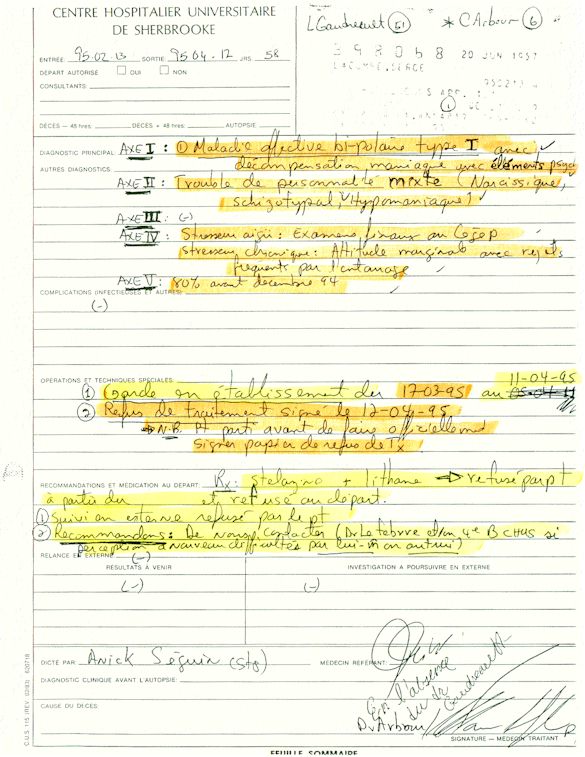 CENTRE HOSPITALIER UNIVERSITAIRE
DE SHERBROOKE
L Gaudreault (51) * C Arbour (6)
398068 20 JUN 1957
LACOMBE, SERGE
ENTRÉE 95.02.13 SORTIE 95.04.12 JRS 58
DEPART AUTORISÉ OUI NON
CONSULTANTS
DÉCÈS — 48 hres: DÉCÈS + 48 hres: AUTOPSIE
DIAGNOSTIC PRINCIPAL AXE I : ① Maladie affective bi-polaire type I avec
AUTRES DIAGNOSTICS. décompensation maniaque avec éléments psyco
AXE II : Trouble de personnalité mixte (Narcissique,
schizotypal, Hypomaniaque)
AXE III : (-)
AXE IV : Stresseur aigü : Examens finaux au Cegep
stresseur chronique : Attitude marginale avec rejets
fréquents par l'entourage
AXE V : 80% avant décembre 94
COMPLICATIONS (INFECTIEUSES ET AUTRES)
(-)
OPÉRATIONS ET TECHNIQUES SPÉCIALES 11-04-95
① Garde en établissement du 17-03-95 au
② Refus de traitement signé le 12-04-95.
N.B. Pt parti avant de faire officiellement
signer papier de refus de Tx
RECOMMANDATIONS ET MÉDICATION AU DÉPART: Rx : stelazine + lithane ⇒ refusé par pt
à partir du et refusé au départ.
① Suivi en externe refusé par le pt
② Recommandons : De nous contacter (Dr Lefebvre et/ou 4e B CHUS si
perception à nouveau difficultés par lui-m̂ ou autrui)
RELANCE EN EXTERNE (-)
RÉSULTATS À VENIR INVESTIGATION À POURSUIVRE EN EXTERNE
(-) (-)
DICTÉ PAR Anick Séguin (stg) MÉDECIN RÉFÉRANT:
DIAGNOSTIC CLINIQUE AVANT L'AUTOPSIE
En l'absence
du dr
Gaudreault
CAUSE DU DÉCÈS
Dr Arbour
SIGNATURE — MÉDECIN TRAITANT
C.U.S. 115 (REV. 02/83) 620718
FEUILLE SOMMAIRE